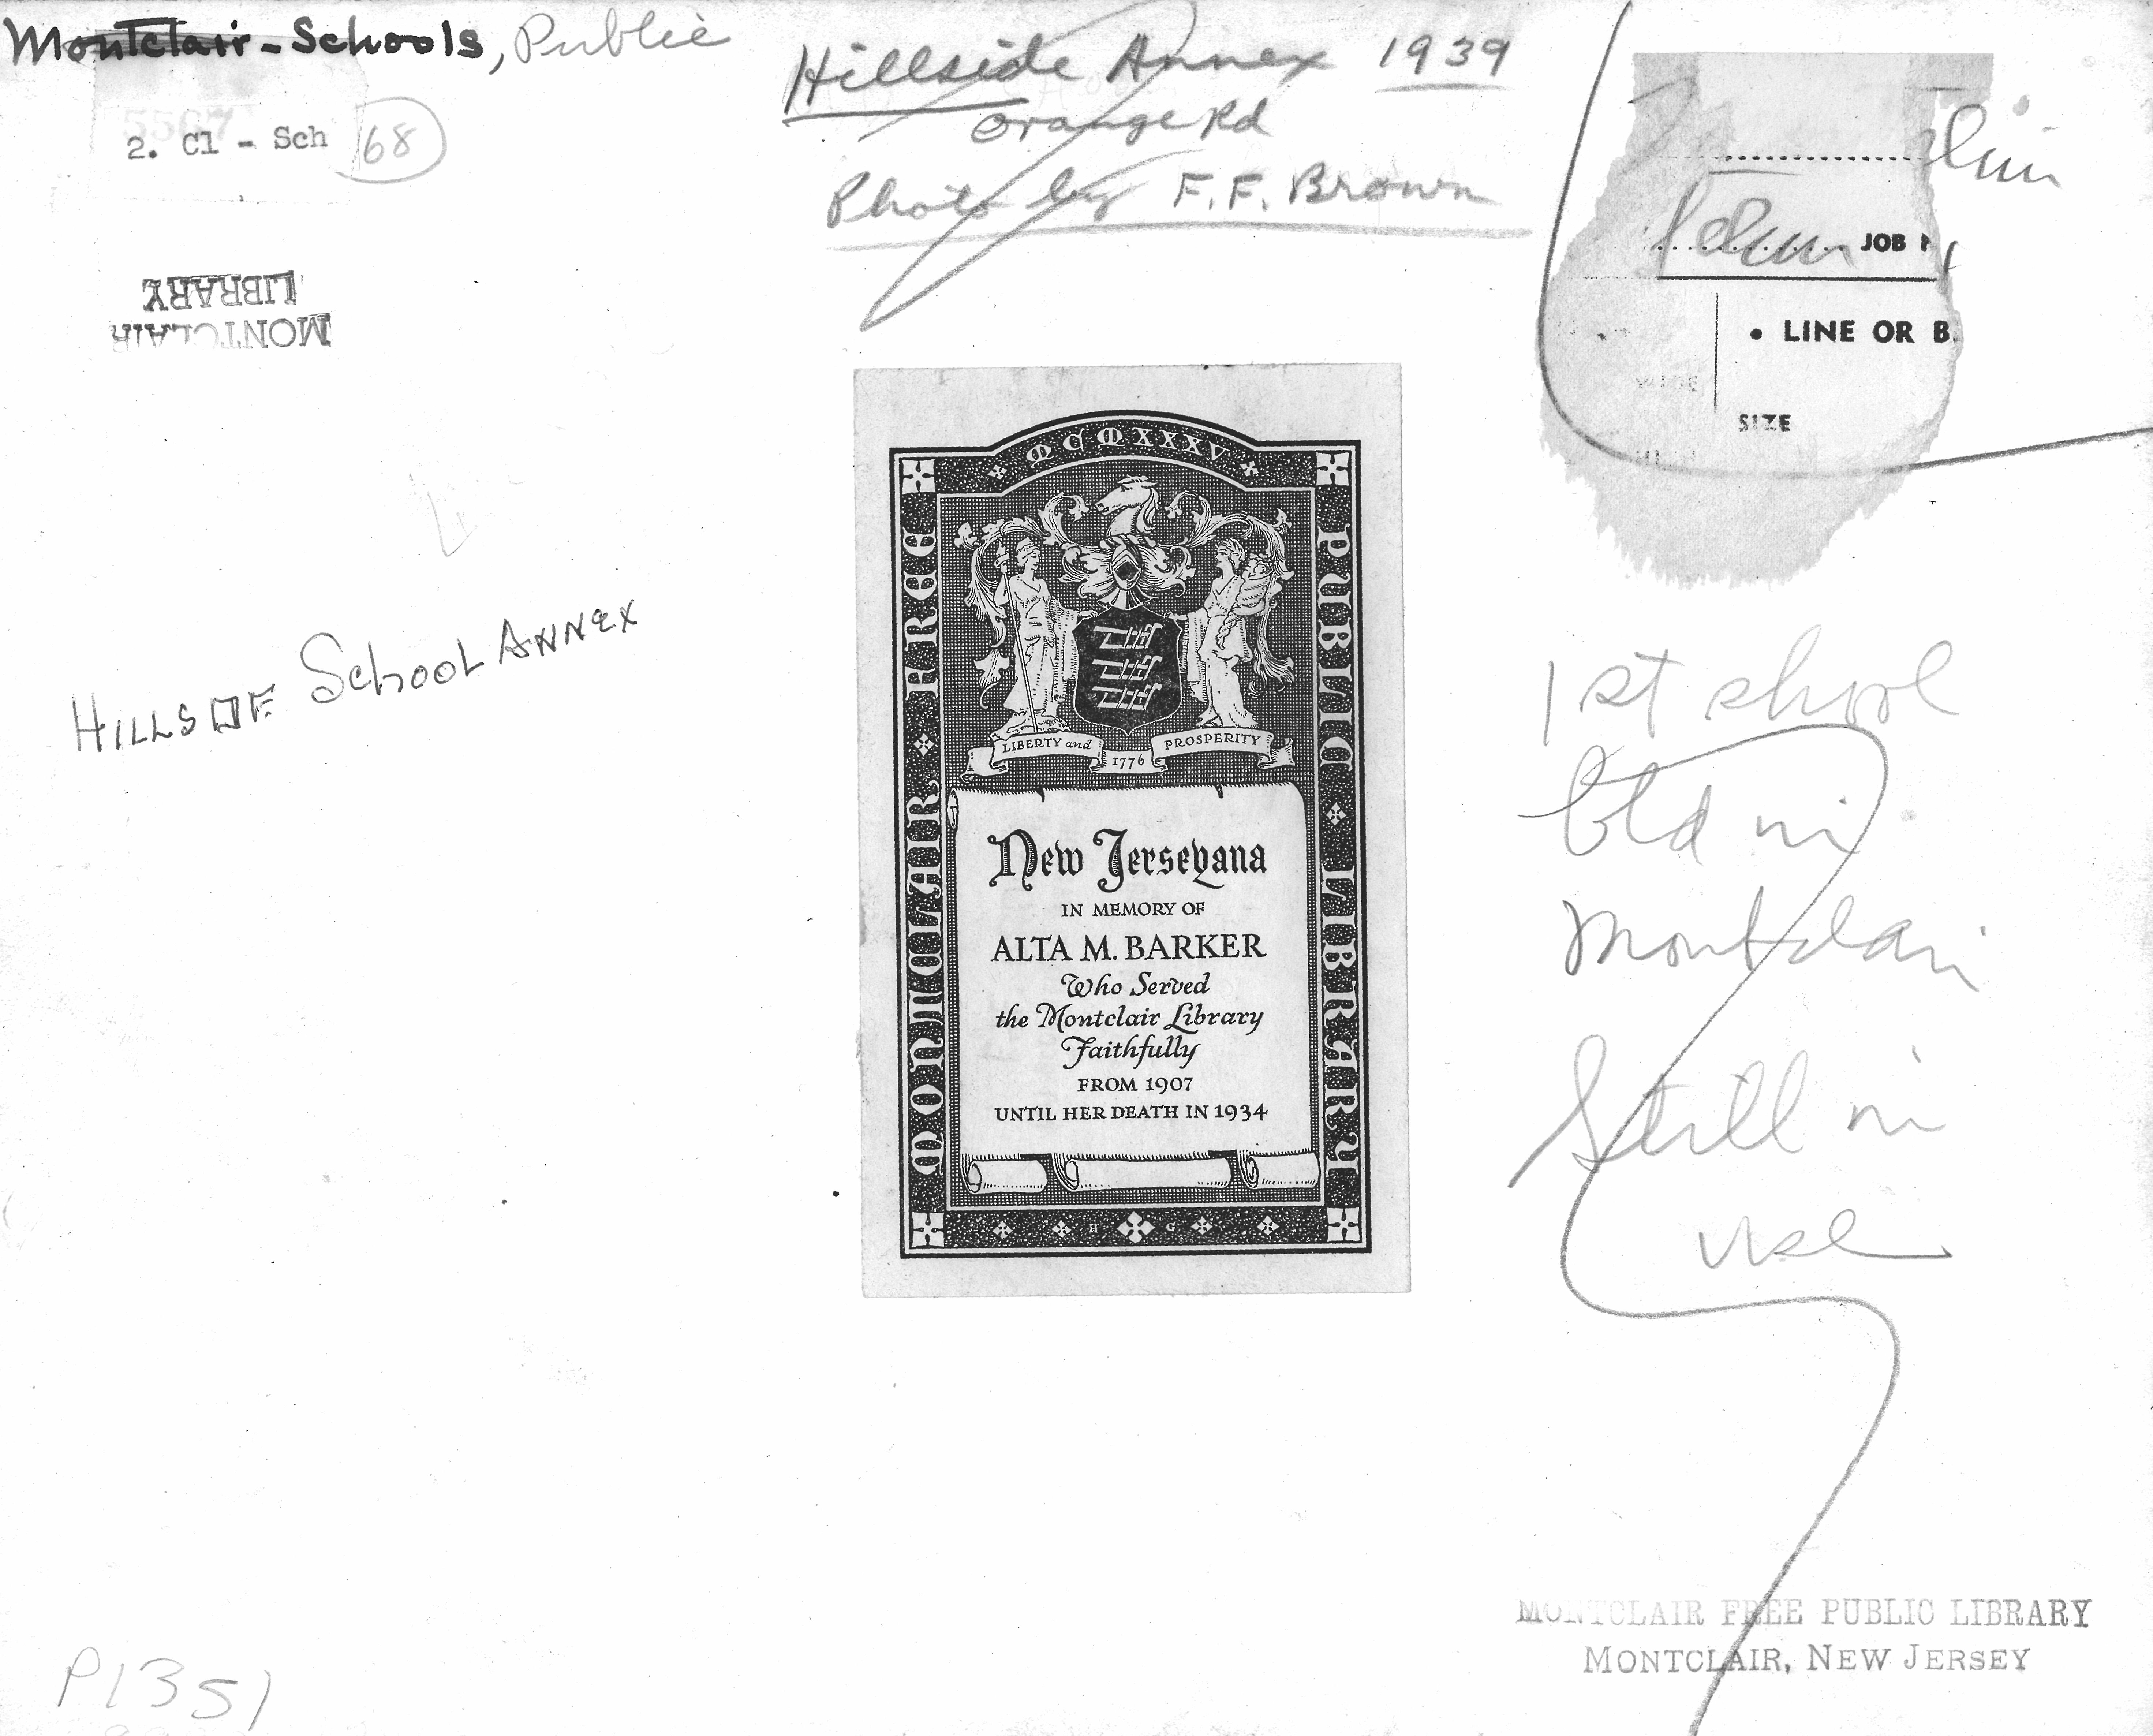 Montclair-Schools, Public
5567
2. Cl - Sch 68
MONTCLAIR
LIBRARY
Hillside Annex 1939
Orange Rd
Photo by F.F. Brown
JOB
• LINE OR B
WIDE
SIZE
HILLSIDE School ANNEX
MCMXXXV
MONTCLAIR FREE
PUBLIC LIBRARY
LIBERTY and
PROSPERITY
1776
New Jerseyana
IN MEMORY OF
ALTA M. BARKER
Who Served
the Montclair Library
Faithfully
FROM 1907
UNTIL HER DEATH IN 1934
H G
1st school
bld in
Montclair
Still in
use
MONTCLAIR FREE PUBLIC LIBRARY
MONTCLAIR, NEW JERSEY
P1351